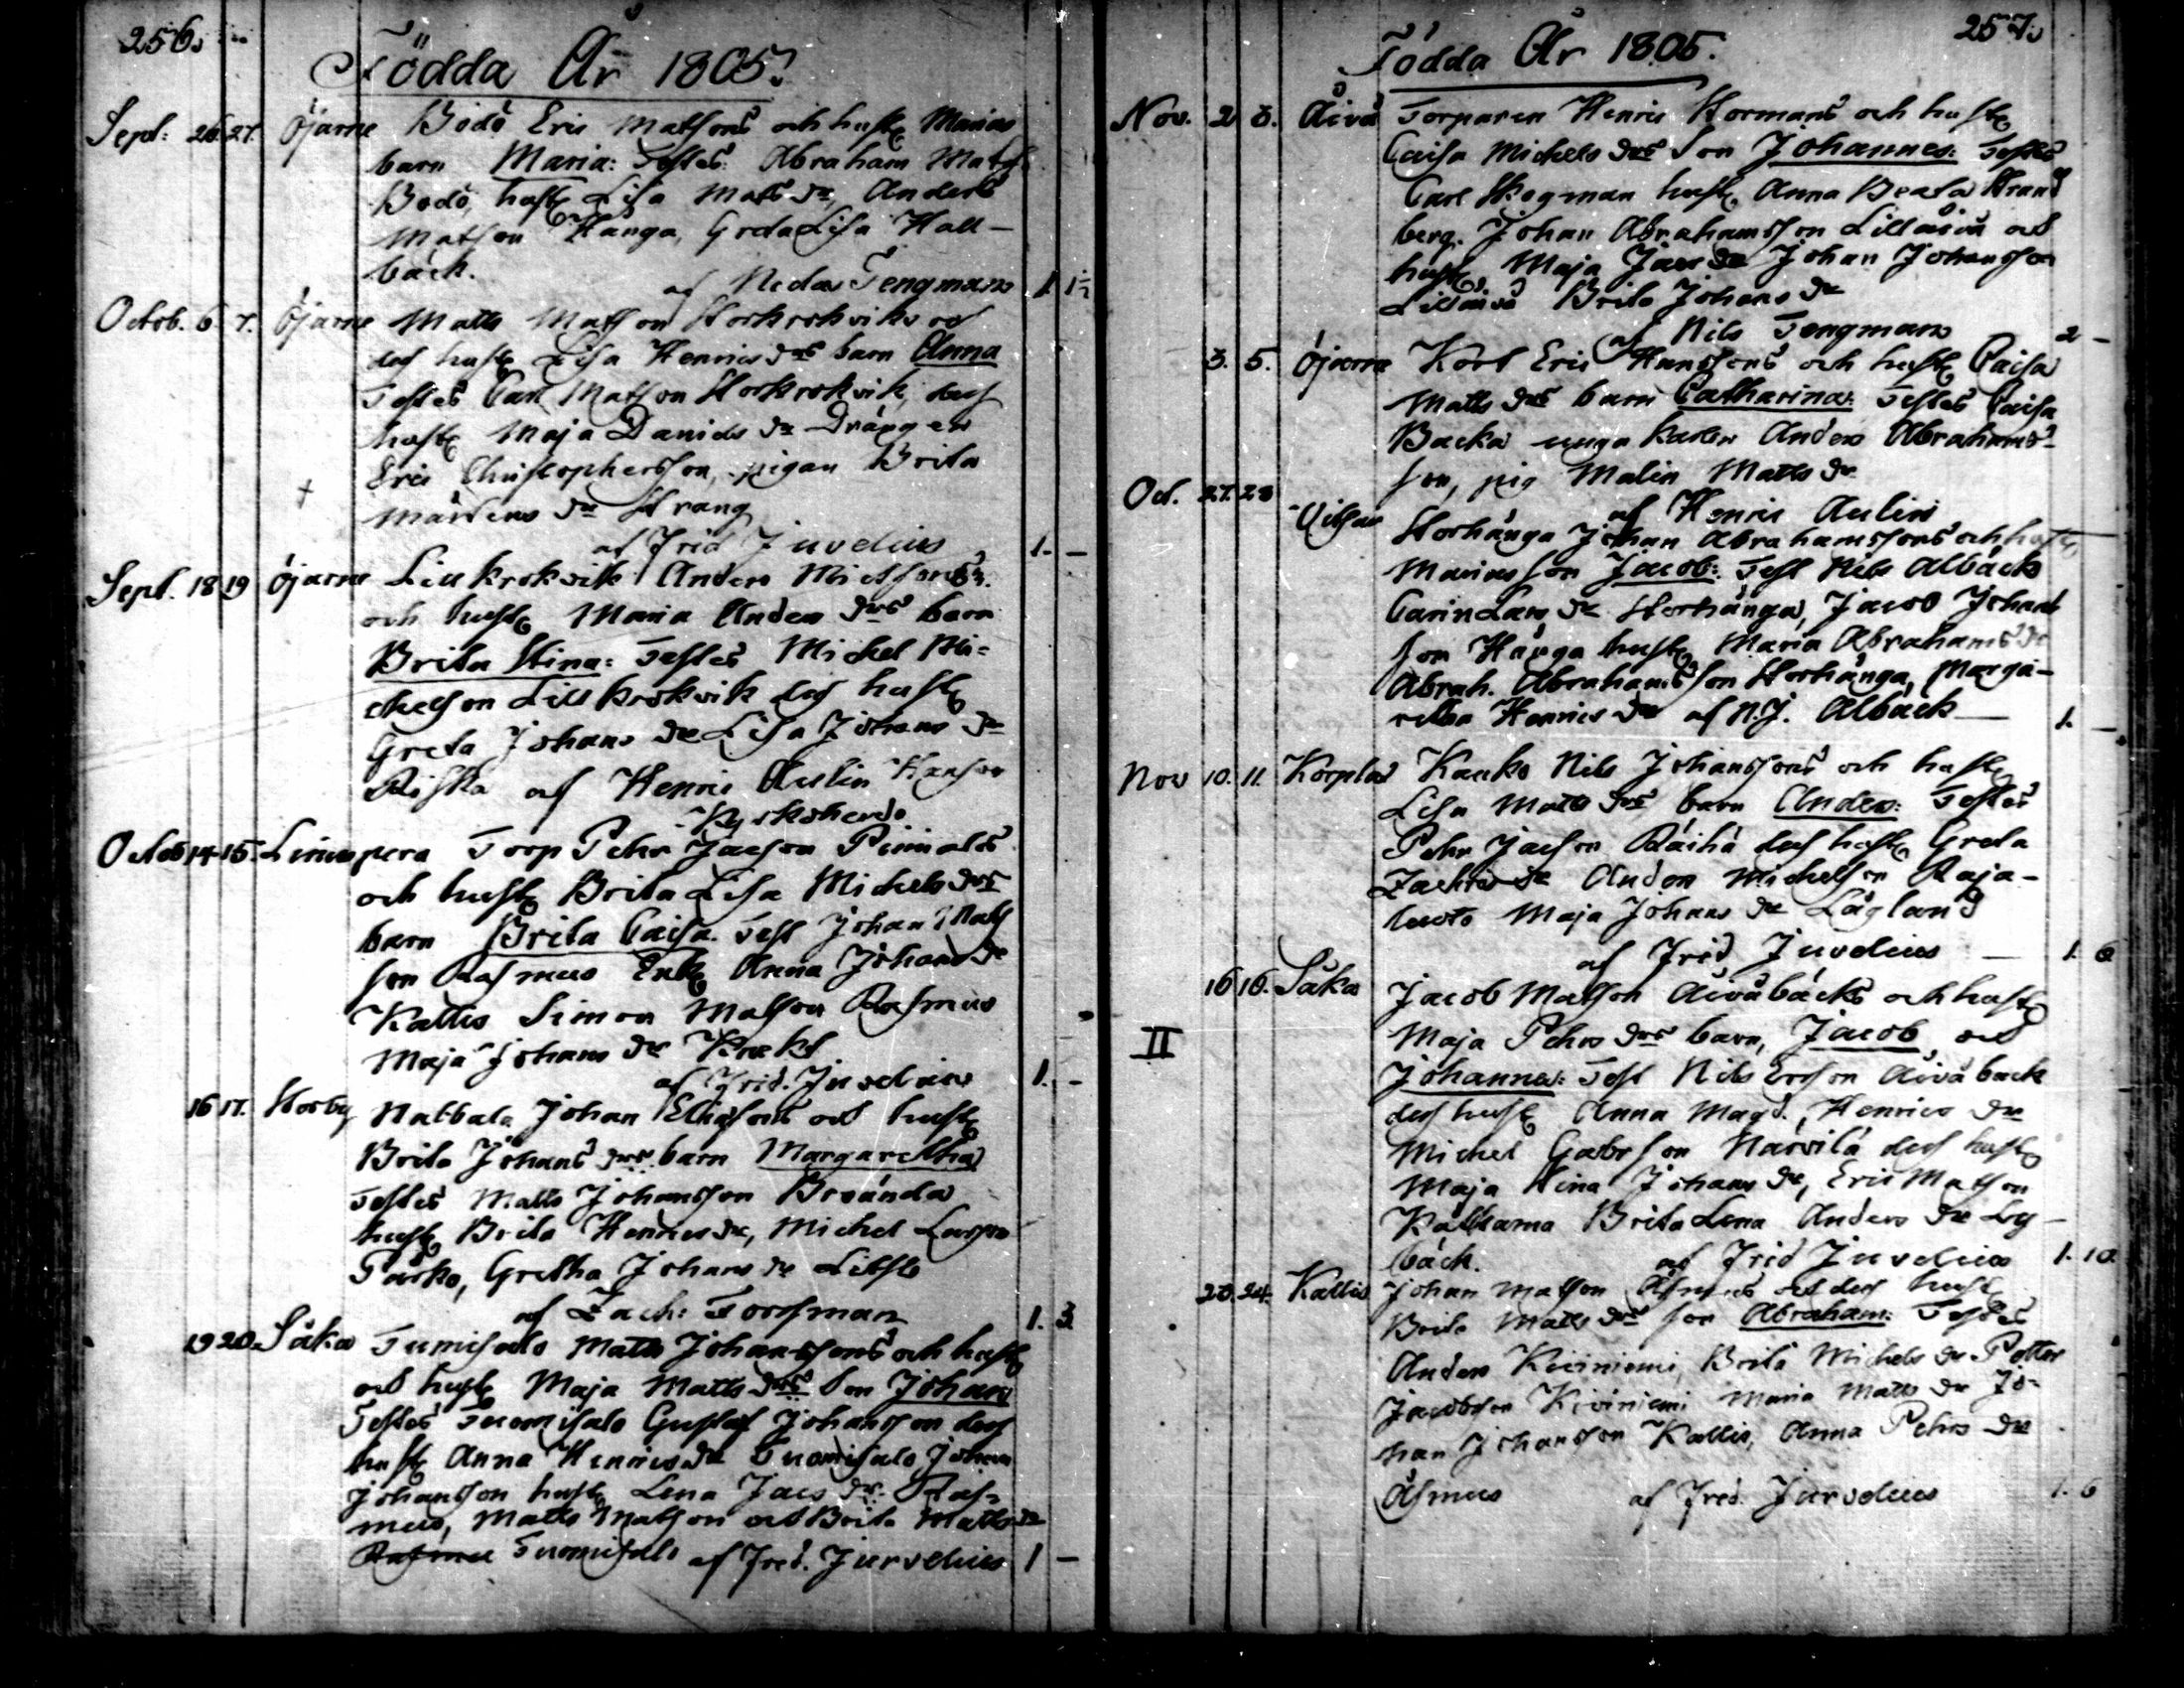 256.
Födda År 1805.
Sept: 26. 27. Öjarne Bodö Eric Matsons och hust Marias
barn Maria: Testes: Abraham Mats
Bodö, hust Lisa Mats dr, Anders
Matson Hänga, Greta Lisa Hall-
bäck.
af Nicolas Tengman 1 1½
Octob. 6 7. Öjarne Matts Matson Storkrokviks och
des hust Lisa Henrics drs barn Anna
Testes Carl Matson Storkrokvik, des
hust Maja Daniels dr Drängen
Eric Christophersson, pigan Brita
† Mårtens dr Strang
af Frid Juvelius 1. –
Sept. 18 19 Öjarne Lill krokvik Anders Michsons
och hust Maria Anders drs barn
Brita Stina: Testes Michel Mi-
chelson Lillkrokvik des hust
Greta Johans dr Lisa Johans dr
Riska af Henric Aulin
Kyrkoherde
Octob 14 15. Linnapera Torp Pehr Jacson Pimials
och hust Brita Lisa Michels drs
barn Brita Caisa. Test Johan Mats
son Rasmus Enk Anna Johans dr
Kallis Simon Matson Rasmus
Maja Johans dr Knekt
af Frid. Juvelius 1. –
16 17. Storby Natbala Johan Eliasons och hust
Brita Johans drs barn Margaretha
Testes Matts Johansson Brvända
hust Brita Henrics dr, Michel Larss
Pasko, Gretha Johans dr Litsle
af Zach: Forsman 1. 3.
19 20. Såka Tumisalo Matts Johanssons och hust
och hust Maja Matts drs son Johan
Testes Tuomisalo Gustaf Johansson des
hust Anna Henrics dr Tuomisalo Johan
Johansson hust Lena Jacs dr. Ras-
mus, Matts Matson och Brita Matts dr
Rasmus Tuomisalo af Fred. Jurvelius 1 –
257.
Födda År 1805.
Nov. 2 3. Åivo Torparen Henric Stormans och hust
Caisa Michels drs Son Johannes: Testes
Carl Skogman hust. Anna Beata Strand
berg. Johan Abrahamsson Lillåivo och
hust. Maja Jacs dr Johan Johansson
Lillåivo Brita Johans dr
af Nils Tengman 2 –
3. 5. Öjarne Kort Eric Hanssons och hust Caisa
Matts drs barn Catharina: Testes Caisa
Backa unga karlen Anders Abrahams-
son, pig Malin Matts dr
af Henric Aulin
Oct. 27. 28 Vitsar Storhänga Johan Abrahamssons och hust
Marias son Jacob: Test Nils Albäck
Carin Lars dr Storhänga, Jacob Johans
son Hänga hust Maria Abrahams dr
Abrah. Abrahamsson Storhänga, Marga-
retha Henrics dr af N.J. Alback 1. –
Nov 10. 11. Korplax Kauko Nils Johanssons och hust
Lisa Matts drs barn Anders: Testes
Pehr Jacson Räihä des hust Greta
Zachris dr Anders Michelson Raja-
luoto Maja Johans dr Lägland
af Frid Juvelius 1. 6
16 16. Såka Jacob Matson Åivobäcks och hust
II Maja Pehrs drs barn, Jacob och
Johannes: Test Nils Ersson Åivoback
des hust Anna Magd. Henrics dr
Michel Gabrson Narvilä des hust
Maja Stina Johans dr, Eric Matson
Kållkarna Brita Lena Anders dr Ly-
bäck. af Frid Juvelius 1. 10.
23. 24. Kallis Johan Matson Åsmus och des hust
Brita Matts drs son Abraham: Testes
Anders Kiviniemi, Brita Michels dr Potter
Jacobson Kiviniemi Maria Matts dr Jo-
han Johansson Kallis, Anna Pehrs dr
Åsmus af Fred. Jurvelius 1. 6